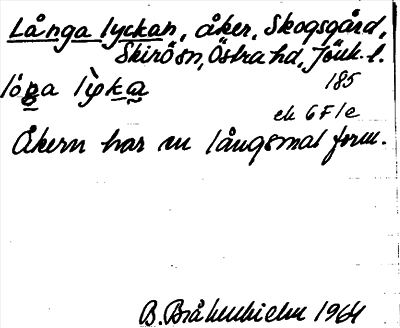 Långa lyckan, åker, Skogsgård,
Skirö sn, Östra hd, Jönk. l.
185
ek 6F1e
Åkern har en långsmal form.
B. Bråkenhielm 1964